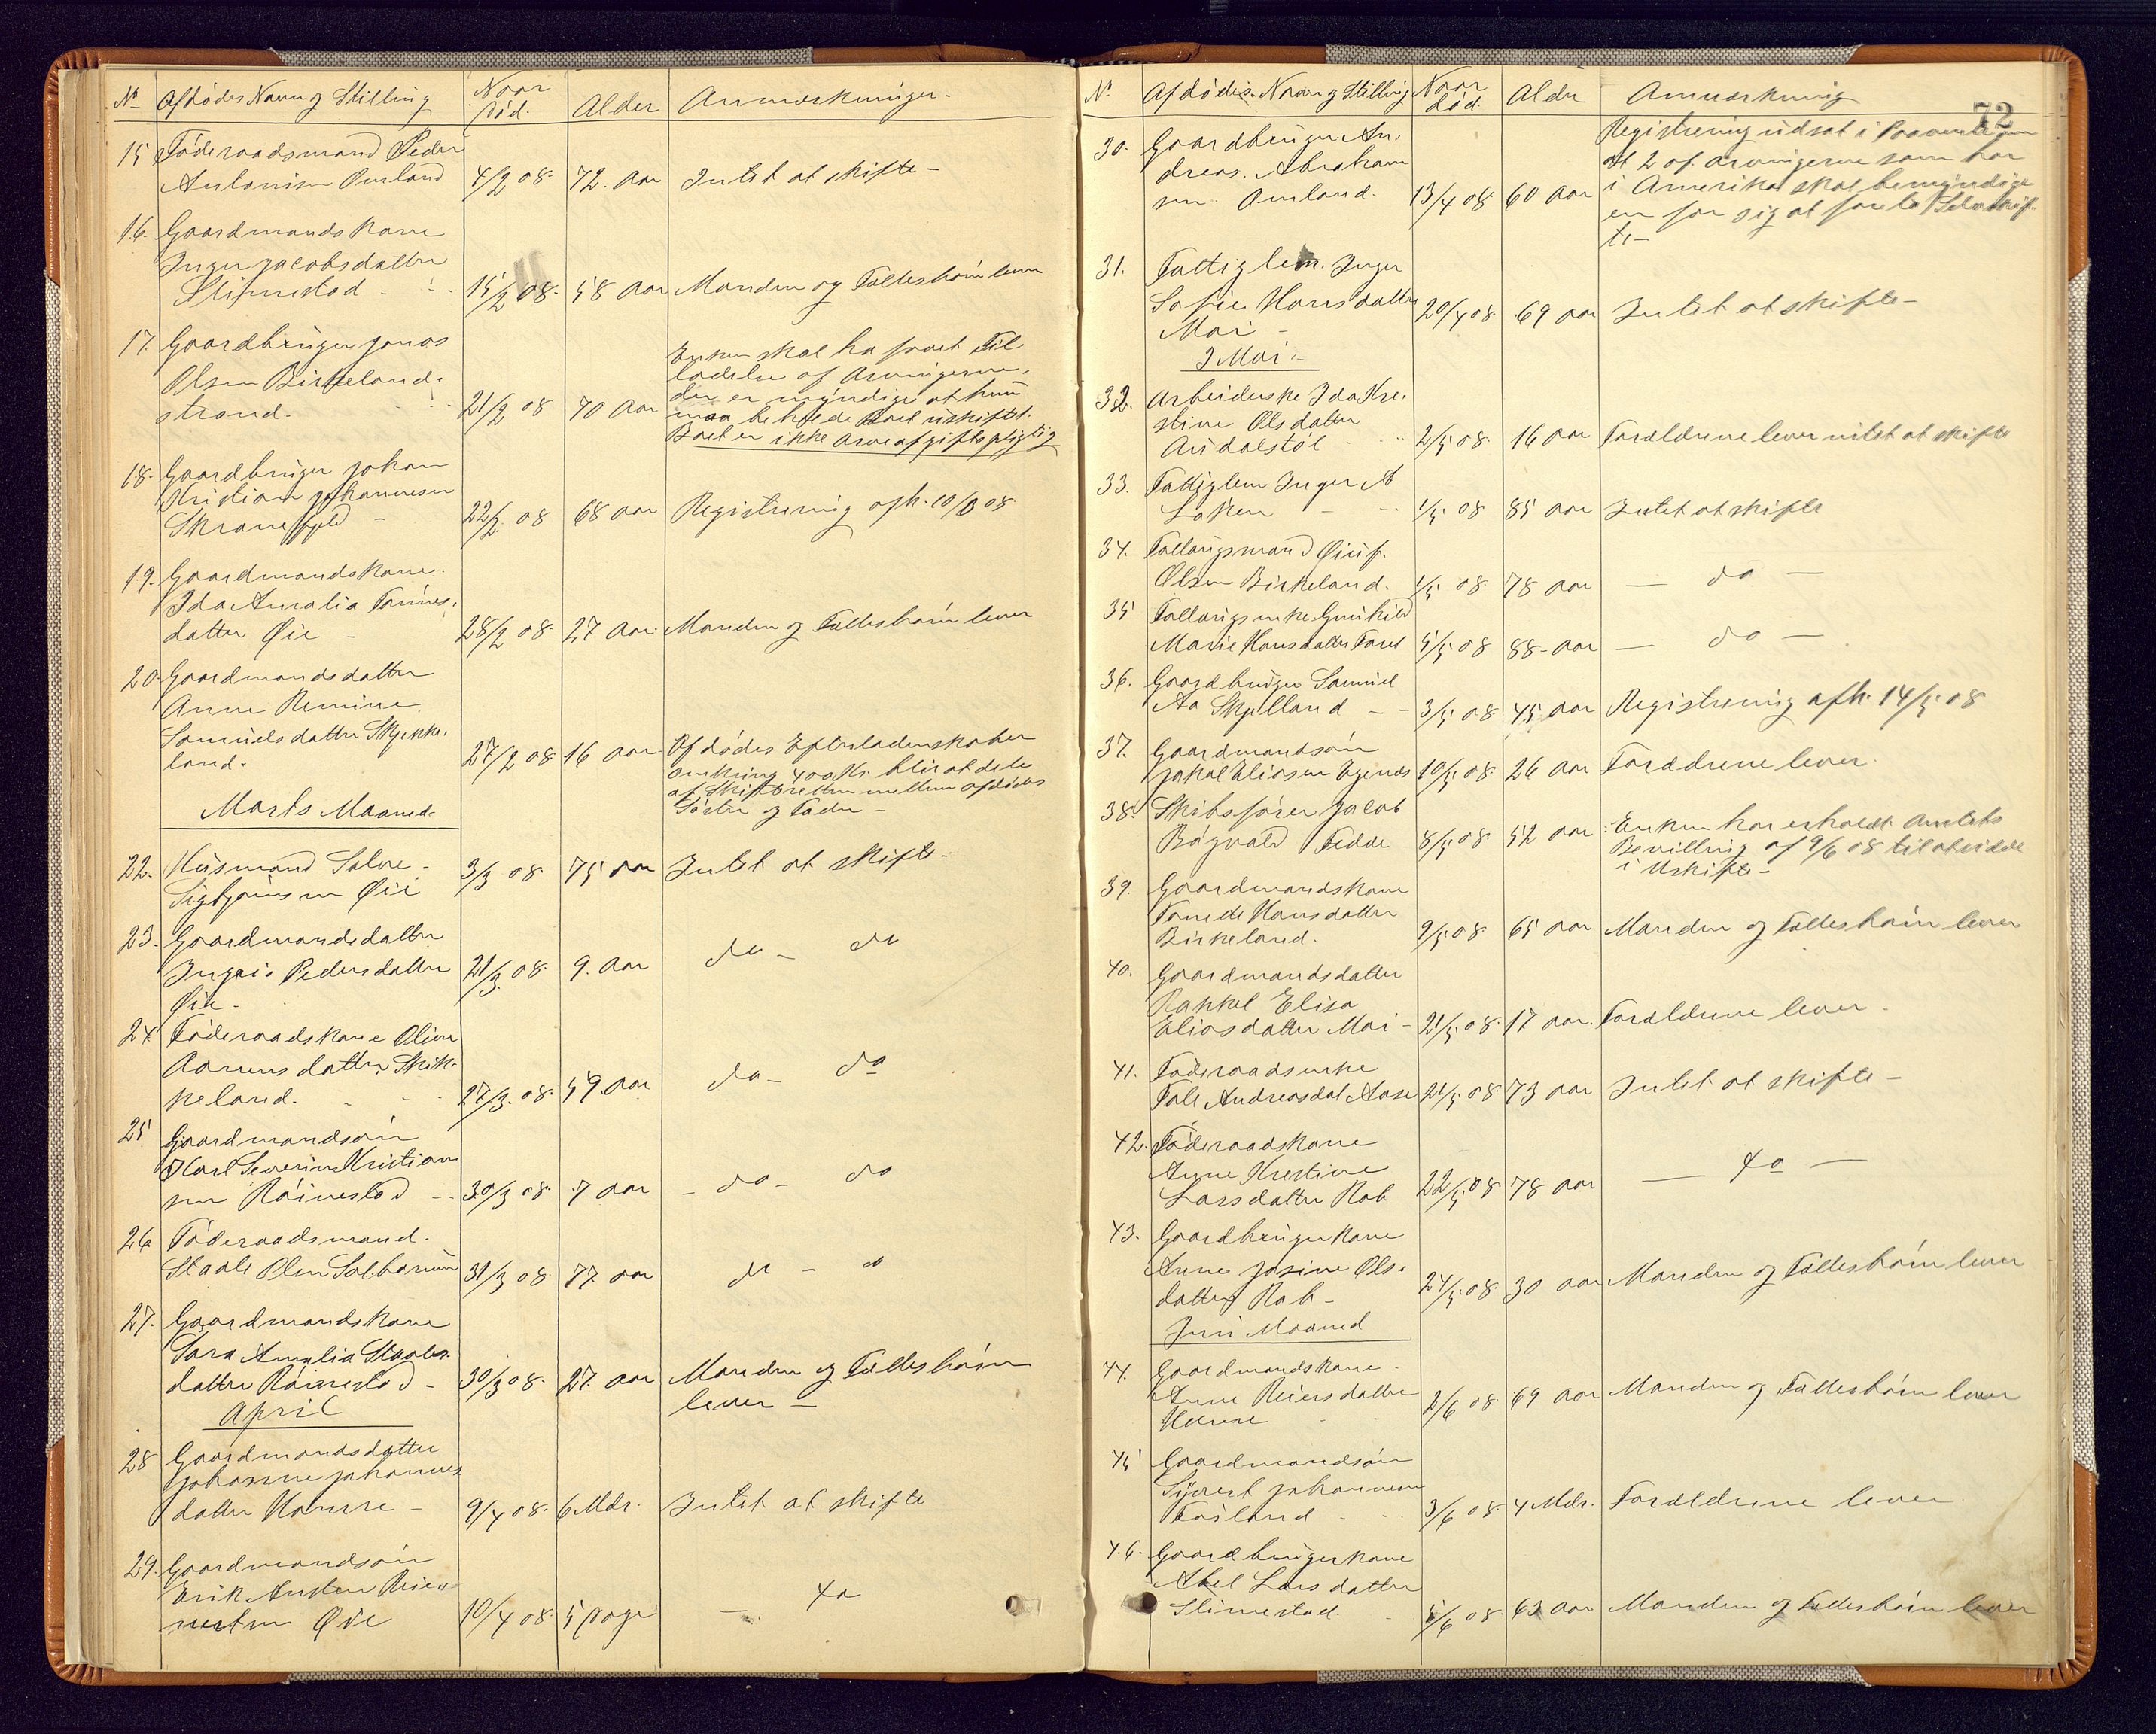 No Afdødes Navn og Stilling Naar død. Alder Anmærkninger.
15 Føderaadsmand Peder
Antonisen Omland 4/2 08. 72. Aar Intet at skifte -
16. Gaardmandskone
Inger Jacobsdatter
Slimestad 15/2 08. 58 Aar Manden og Fællesbørn lever
17. Gaardbruger Jonas
Olsen Birkeland.
strand. 21/2 08 70 Aar
Enken skal ha faaet Til-
ladelse af Arvingerne,
der er myndige at hun
maa beholde Boet uskiftet.
Boet er ikke arveafgiftspligtig
18. Gaardbruger Johan
Kristian Johannesen
Skranefjeld - 22/2. 08 68 Aar Registrering afh. 10/3 08
19. Gaardmandskone.
Ida Amalia Tønnes.
datter Øie - 28/2 08. 27 Aar. Manden og Fællesbørn lever
20. Gaardmandsdatter
Anne Remine
Samuelsdatter Skjekke.
land. 27/2 08. 16 Aar
Afdødes Efterladenskaber
omkring 400 Kr. blir at dele
af Skifteretten mellem afdødes
Søster og Fader -
Marts Maaned.
22. Husmand Salve -
Sigbjørnsen Øie 3/3 08 75 Aar Intet at skifte -
23. Gaardmandsdatter
Ingris Pedersdatter
Øie - 21/3. 08. 9. Aar do - do
24. Føderaadskone Oline
Aanensdatter Skik-
keland. 27/3. 08. 59. Aar do - do
25 Gaardmandsøn
Karl Severin Kristian
sen Røinestad - 30/3 08. 7 Aar - do - do
26 Føderaadsmand.
Staale Olsen 31/3 08 77 Aar do - do
27. Gaardmandskone
Sara Amalia Staales.
datter Røinestad - 30/3 08. 27 Aar Manden og Fællesbørn
lever -
April
28 Gaardmandsdatter
Johanne Johannes
datter Hamre - 9/4 08. 6 Mdr. Intet at skifte
29. Gaardmandsøn
Erik Anton
Øie 10/4 08. 5 Dage - do
No Afdødes. Navn og Stilling Naar død. Alder Anmærkning
72
30. Gaardbruger An.
dreas. Abraham
sen Omland. 13/4 08 60 Aar
Registrering udsat i Paavente om
at 2 af arvingerne som bor
i Amerika skal bemyndige
en for sig at foreta Selvskif-
te -
31. Fattiglem. Inger
Sofie Hansdatter 20/4 08 69 Aar Intet at skifte -
Moi -
I Mai.
32. Arbeiderske Ida Kre.
stine Olsdatter
Aadalstøl 2/5 08. 16 Aar Forældrene lever intet at skifte
33. Fattiglem Inger A
Løken - 1/5 08 85 Aar Intet at skifte
34. Fællougsmand
Olsen Birkeland. 1/5 08 78 Aar - do -
35 Gunhild
Marie Hansdatter 5/5 08 88 - Aar - do -
36. Gaardbruger Samuel
Aa Skjelland - - 3/5 08 45 Aar Registrering afh. 14/5 08
37. Gaardmandsøn
Jakob Eliasen Egenes 10/5 08. 26 Aar Forældrene lever.
38. Skibsfører Jacob
Bogvald Fedde 8/5 08 52 Aar.
Enken har erholdt Amtets
Bevilling af 9/6 08 til at sidde
i Uskifte -
39. Gaardmandskone
Tomede Hansdatter
Birkeland. 9/5 08 65 Aar Manden og Fællesbørn lever
40. Gaardmandsdatter
Rakkel Elisa
Eliasdatter Moi - 21/5 08. 17 Aar. Forældrene lever -
41. Føderaadsenke
Tale Andreasdat Aase 21/5 08 73 Aar Intet at skifte -
42. Føderaadskone
Anne Krestine
Larsdatter Rob 22/5 08 78 Aar - do -
43. Gaardbrugerkone
Anne Josine Ols.
datter Rob - 24/5 08. 30 Aar Manden og Fællesbørn lever
Juni Maaned
44. Gaardmandskone -
Anne Reiersdatter
Hamre 2/6 08 69 Aar Manden og Fællesbørn lever
45 Gaardmandsøn
Syvert Johannesen
Føiland 3/6 08. 4 Mdr. Forældrene lever.
46. Gaardbrugerkone
Abel Larsdatter
Slimestad. 5/6 08. 62 Aar Manden og Fællesbørn lever